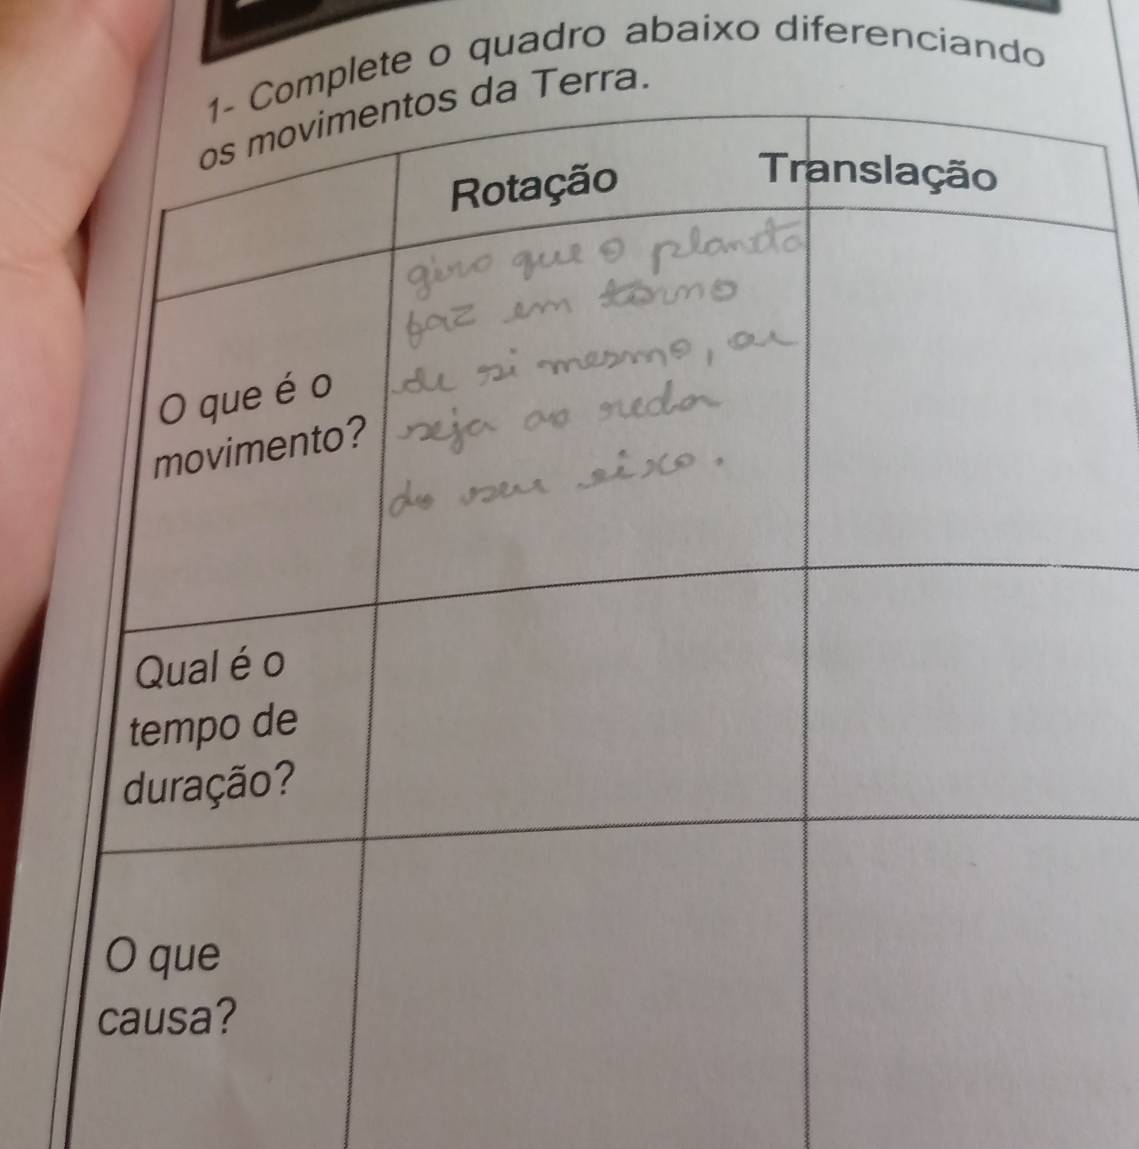 1- Complete o quadro abaixo diferenciando
os movimentos da Terra.
Rotação
Translação
O que é o
movimento?
giro que o planeta
faz em torno
de si mesmo, ou
seja ao redor
do seu eixo.
Qual é o
tempo de
duração?
O que
causa?